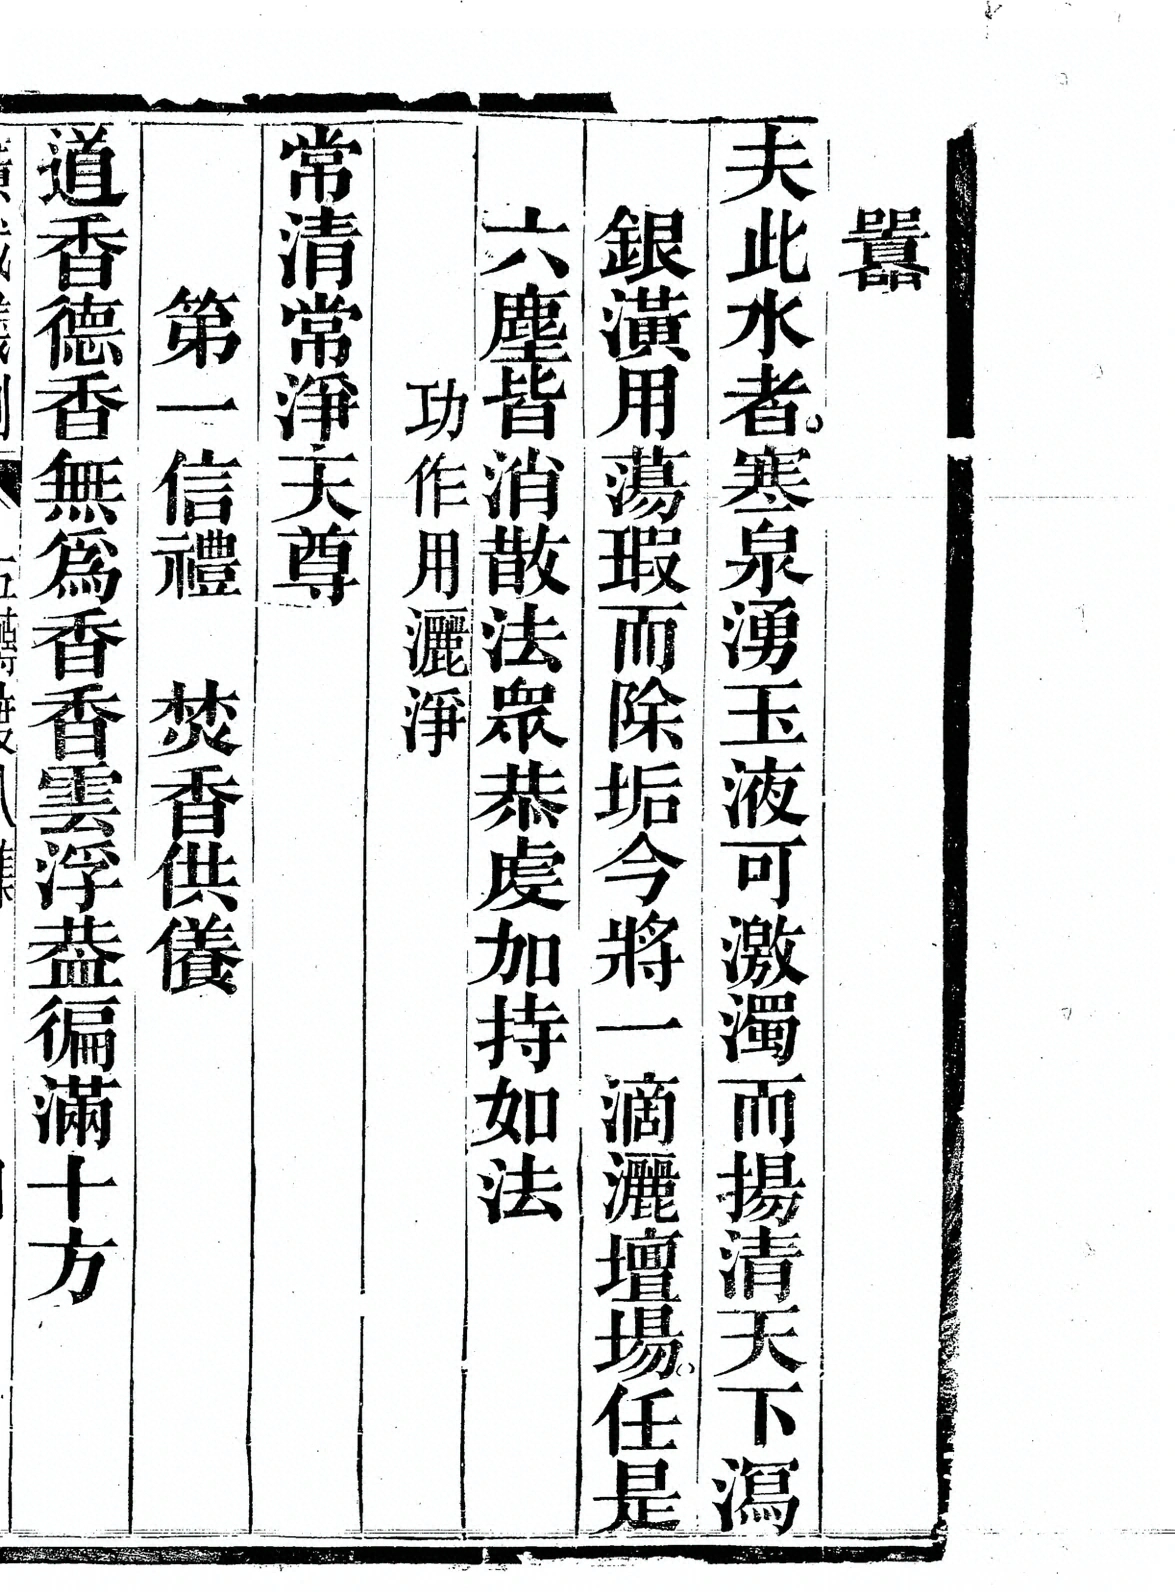 囂
夫此水者。寒泉湧玉液可激濁而揚清天下瀉
銀潢用蕩瑕而除垢今將一滴灑壇場。任是
六塵皆消散法眾恭虔加持如法
功作用灑淨
常清常淨天尊
第一信禮　焚香供養
道香德香無爲香香雲浮葢徧滿十方